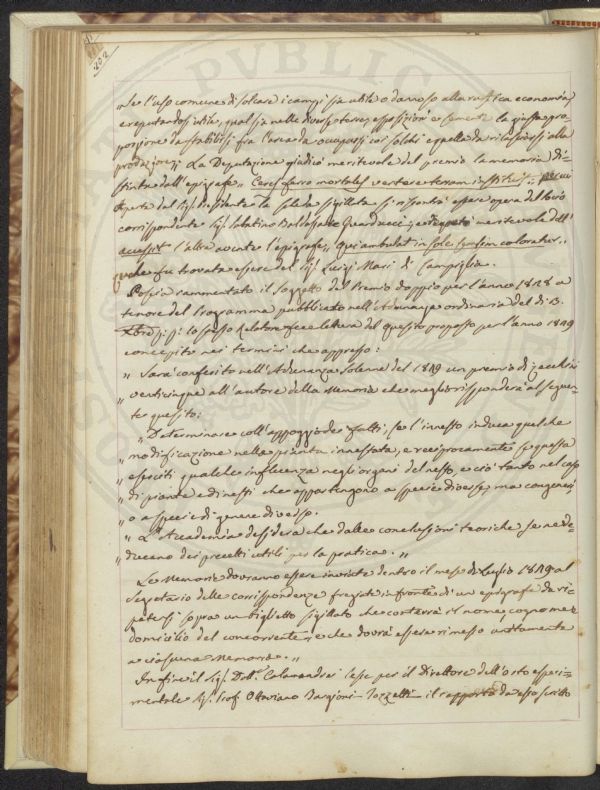 202
„ Se l'uso comune di solcare i campi sia utile o dannoso alla rustica economia,
e reputandosi utile, qual sia nelle diverse terre, esposizioni e semente la giusta pro-
porzione da stabilirsi fra l'area da occuparsi coi solchi e quella da rilasciarsi alla
produzione; La Deputazione giudicò meritevole del premio la memoria di-
stinta dall'epigrafe „ Ceres ferro mortales vertere terram instituit „ per cui
aperta dal Sig. Presidente la scheda sigillata si riscontrò essere opera del Socio
corrispondente Sig. Sabatino Baldassarre Guarducci; e reputò meritevole dell'
accessit l'altra avente l'epigrafe „ Qui ambulat in sole, tamen coloratur „
quale fu trovata essere del Sig. Luigi Masi di Campiglia.
Poscia rammentato il soggetto del Premio doppio per l'anno 1818 a
tenore del Programma pubblicato nell'Adunanza ordinaria del dì 13.
Xbre lo stesso Relatore fece lettura del quesito proposto per l'anno 1819
concepito nei termini che appresso:
„ Sarà conferito nell'Adunanza Solenne del 1819 un premio di zecchini
„ venticinque all'autore della Memoria che meglio risponderà al seguen-
te quesito:
„ Determinare coll'appoggio de' fatti, se l'innesto induca qualche
„ modificazione nella pianta innestata, e reciprocamente se questa
„ eserciti qualche influenza negli organi del nesto, e ciò tanto nel caso
„ di piante e di nesti che appartengono a specie diverse, ma congeneri,
„ o a specie di genere diverso.
„ L'Accademia desidera che dalle conclusioni teoriche se ne de-
„ ducano dei precetti utili per la pratica. „
Le Memorie dovranno essere inviate dentro il mese di Luglio 1819 al
Segretario delle corrispondenze fregiate in fronte di un epigrafe da ri-
petersi sopra un biglietto sigillato che conterrà il nome, cognome e
domicilio del concorrente, e che dovrà essere rimesso unitamente
a ciascuna Memoria. „
In fine il Sig. Dott. Calamandrei lesse per il Direttore dell'orto esperi-
mentale Sig. Prof. Ottaviano Targioni-Tozzetti il rapporto da esso scritto